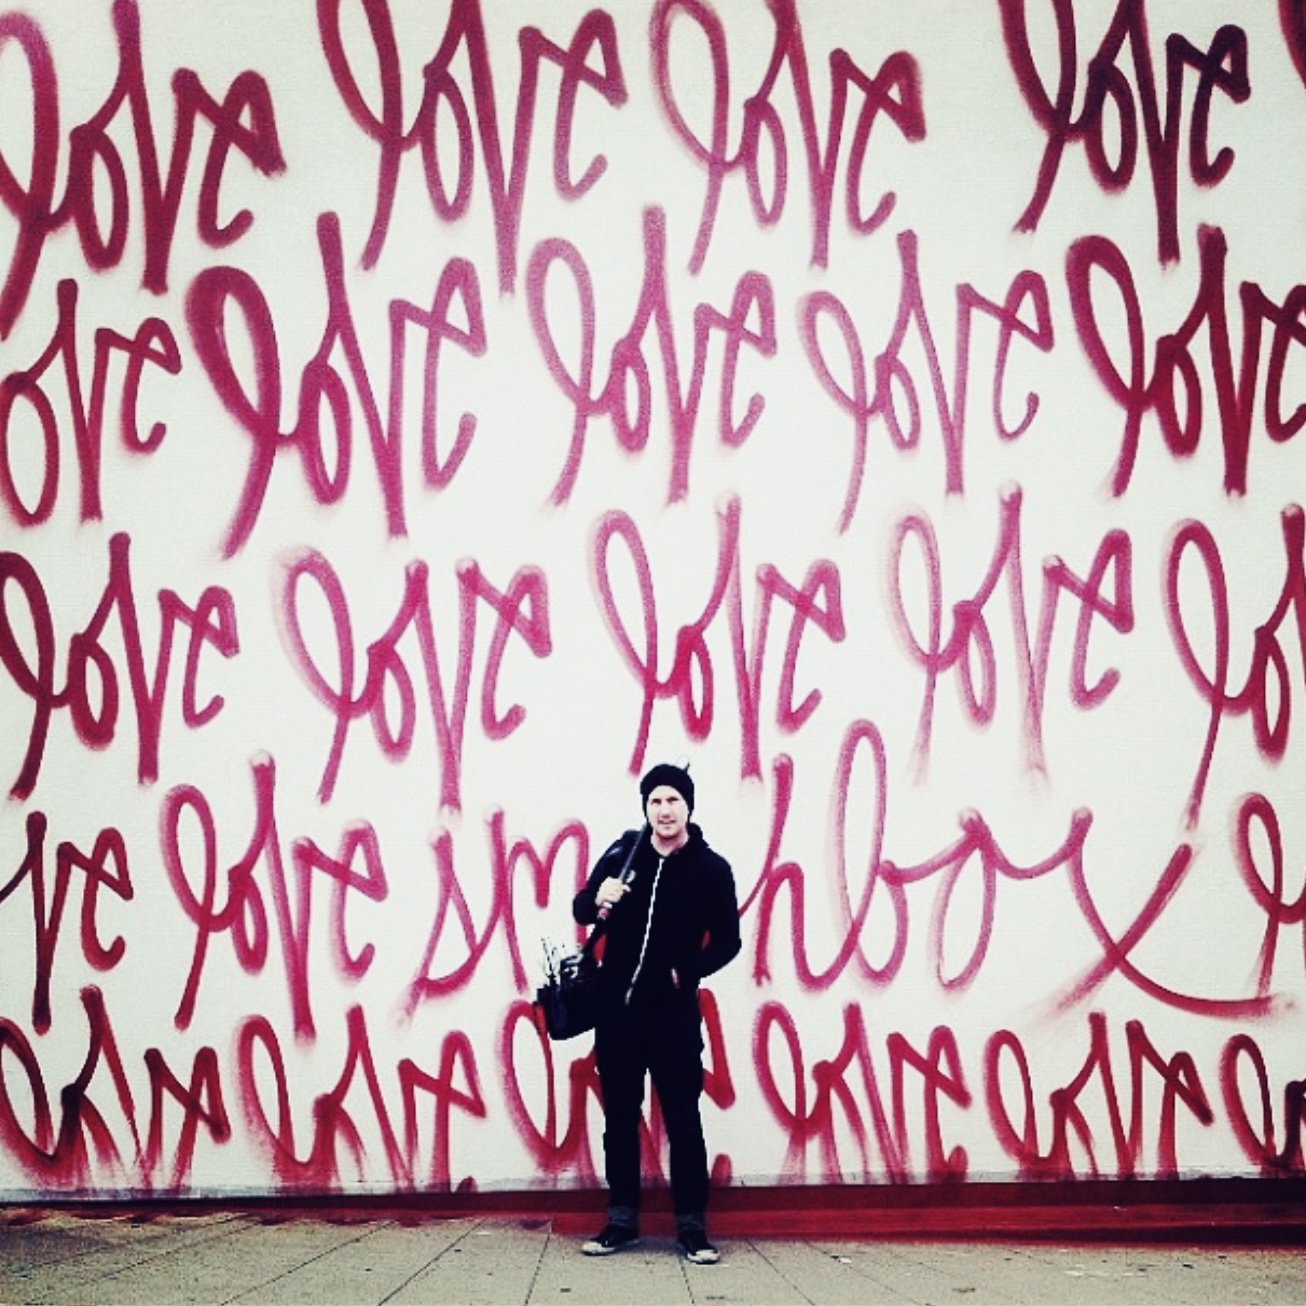 love love love love
ove love love love love
love love love love lo
ve love smashbox
love love love love love